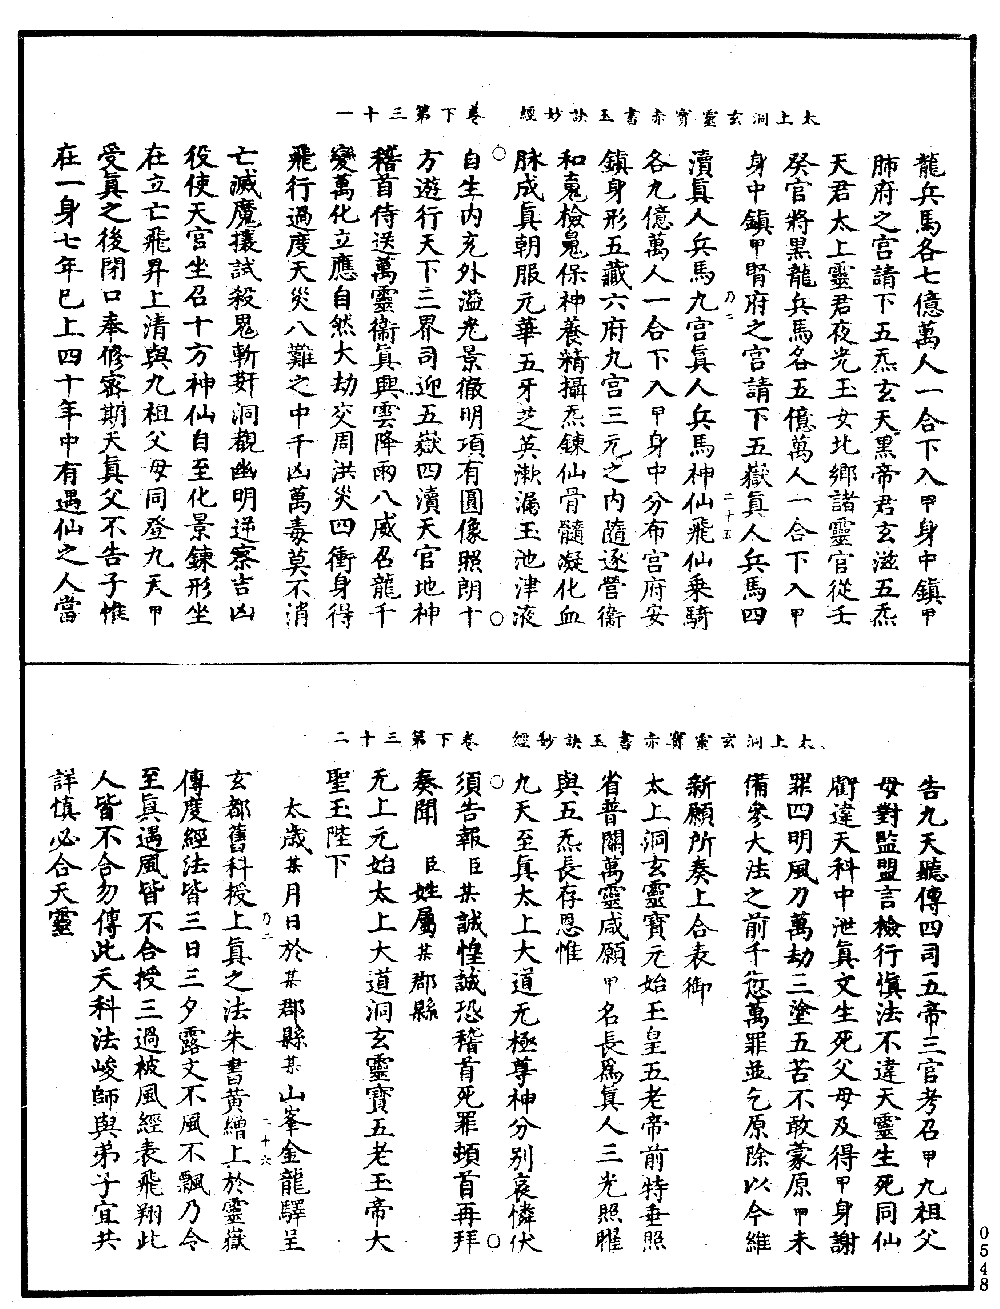 太上洞玄靈寶赤書玉訣妙經　卷下第三十一
龍兵馬各七億萬人一合下入甲身中鎮甲
肺府之宫請下五炁玄天黑帝君玄滋五炁
天君太上靈君夜光玉女北鄉諸靈官從壬
癸官將黑龍兵馬各五億萬人一合下入甲
身中鎮甲腎府之宫請下五嶽真人兵馬四
乃二　二十五
瀆真人兵馬九宫真人兵馬神仙飛仙乘騎
各九億萬人一合下入甲身中分布宫府安
鎮身形五藏六府九宫三元之内隨逐營衛
和䰟檢鬼保神養精攝炁鍊仙骨髓凝化血
脉成真朝服元華五牙芝英漱漏玉池津液
自生内充外溢光景徹明項有圓像照朗十
方遊行天下三界司迎五嶽四瀆天官地神
稽首侍送萬靈衛真興雲降雨八威召龍千
變萬化立應自然大劫交周洪災四衝身得
飛行過度天災八難之中千凶萬毒莫不消
亡滅魔攘試殺鬼斬姧洞觀幽明逆察吉凶
役使天官坐召十方神仙自至化景鍊形坐
在立亡飛昇上清與九祖父母同登九天甲
受真之後閉口奉修密期天真父不告子惟
在一身七年已上四十年中有遇仙之人當
太上洞玄靈寶赤書玉訣妙經　卷下第三十二
告九天聽傳四司五帝三官考召甲九祖父
母對監盟言檢行慎法不違天靈生死同仙
郤違天科中泄真文生死父母及得甲身謝
罪四明風刀萬劫三塗五苦不敢蒙原甲未
備參大法之前千愆萬罪並乞原除以今維
新願所奏上合表御
太上洞玄靈寶元始王皇五老帝前特垂照
省普關萬靈咸願甲名長爲真人三光照曜
與五炁長存恩惟
九天至真太上大道无極尊神分别哀憐伏
須告報臣某誠惶誠恐稽首死罪頓首再拜
奏聞　臣姓屬某郡縣
无上元始太上大道洞玄靈寶五老玉帝大
聖王陛下
太歲某月日於某郡縣某山峯金龍驛呈
乃二　二十六
玄都舊科授上真之法朱書黄繒上於靈嶽
傳度經法皆三日三夕露文不風不飄乃合
至真遇風皆不合授三過被風經表飛翔此
人皆不合勿傳此天科法峻師與弟子宜共
詳慎必合天靈
0548